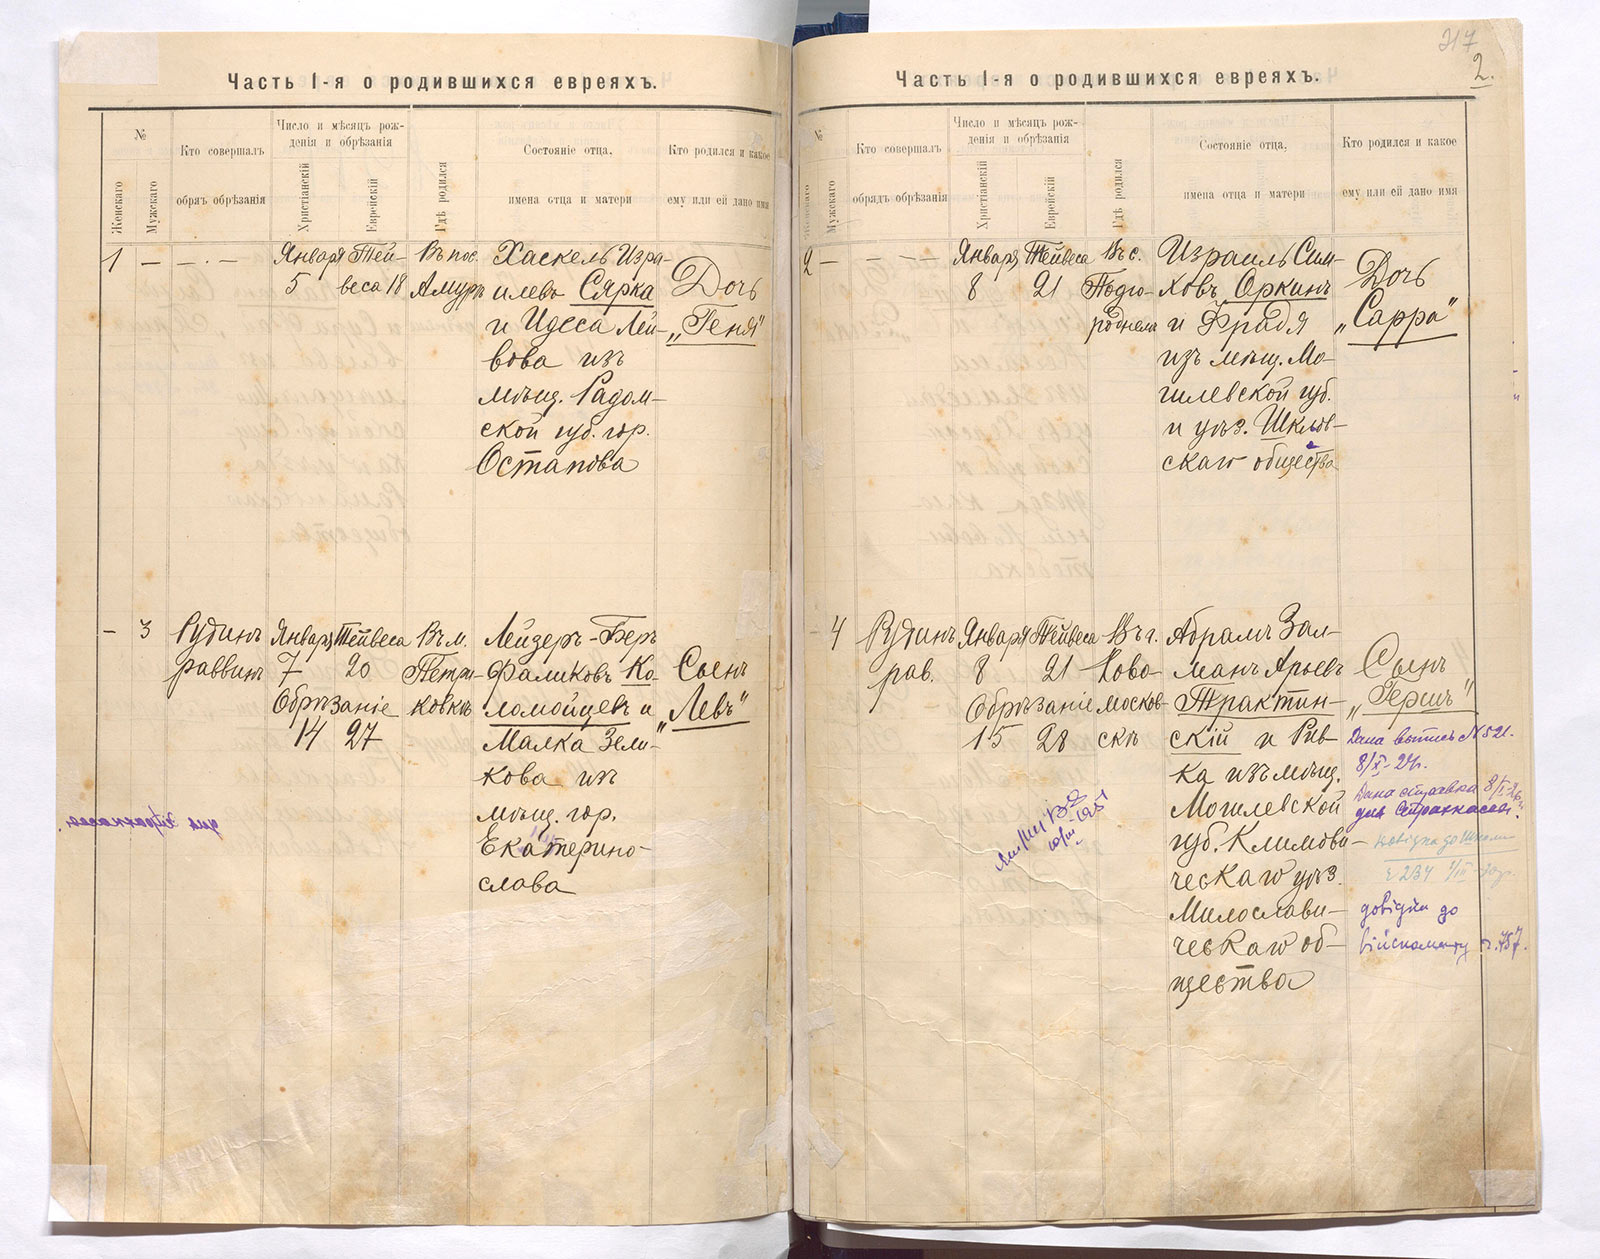 Часть I-я о родившихся евреяхъ.
№
Женскаго
Мужскаго
Кто совершалъ
обрядъ обрѣзанія
Число и мѣсяцъ рож-
денія и обрѣзанія
Христіанскій
Еврейскій
Гдѣ родился
Состояніе отца,
имена отца и матери
Кто родился и какое
ему или ей дано имя
1 — — · —
Января
5
Тей-
веса 18
Въ пос.
Амуръ
Хаскель Изра-
илевъ Сярка
и Идеса Лей-
бова изъ
мѣщ. Радом-
ской губ. гор.
Остапова
Дочь
„Геня"
— 3
Рубинъ
раввинъ
Января
7
Тейвеса
20
Обрѣзаніе
14 27
Въ м.
Петри-
ковкѣ
Лейзеръ-Беръ
Фаликовъ Ко-
ломойцевъ и
Малка Зели-
кова изъ
мѣщ. гор.
Екатерино-
слава
Сынъ
„Левъ"
для Страхкассы.
217
2.
Часть I-я о родившихся евреяхъ.
№
Женскаго
Мужскаго
Кто совершалъ
обрядъ обрѣзанія
Число и мѣсяцъ рож-
денія и обрѣзанія
Христіанскій
Еврейскій
Гдѣ родился
Состояніе отца,
имена отца и матери
Кто родился и какое
ему или ей дано имя
2 — — — —
Января
8
Тейвеса
21
Въ с.
Подго-
роднема
Израиль Сим-
ховъ Оркинъ
и Фрадя
изъ мѣщ. Мо-
гилевской губ.
и уѣз. Шклов-
скаго общества
Дочь
„Сарра"
— 4
Рубинъ
рав.
Января
8
Тейвеса
21
Обрѣзаніе
15 28
Въ г.
Ново-
москов-
скѣ
Абрамъ Зал-
манъ Арьевъ
Трактин-
скій и Рив-
ка изъ мѣщ.
Могилевской
губ. Климови-
ческаго уѣз.
Милослави-
ческаго об-
щества
Сынъ
„Гершъ"
Дана выпись № 521.
8/X-24г.
Дана справка 8/I-26г.
для Страхкассы.
довідка до
військомату ч. 757.